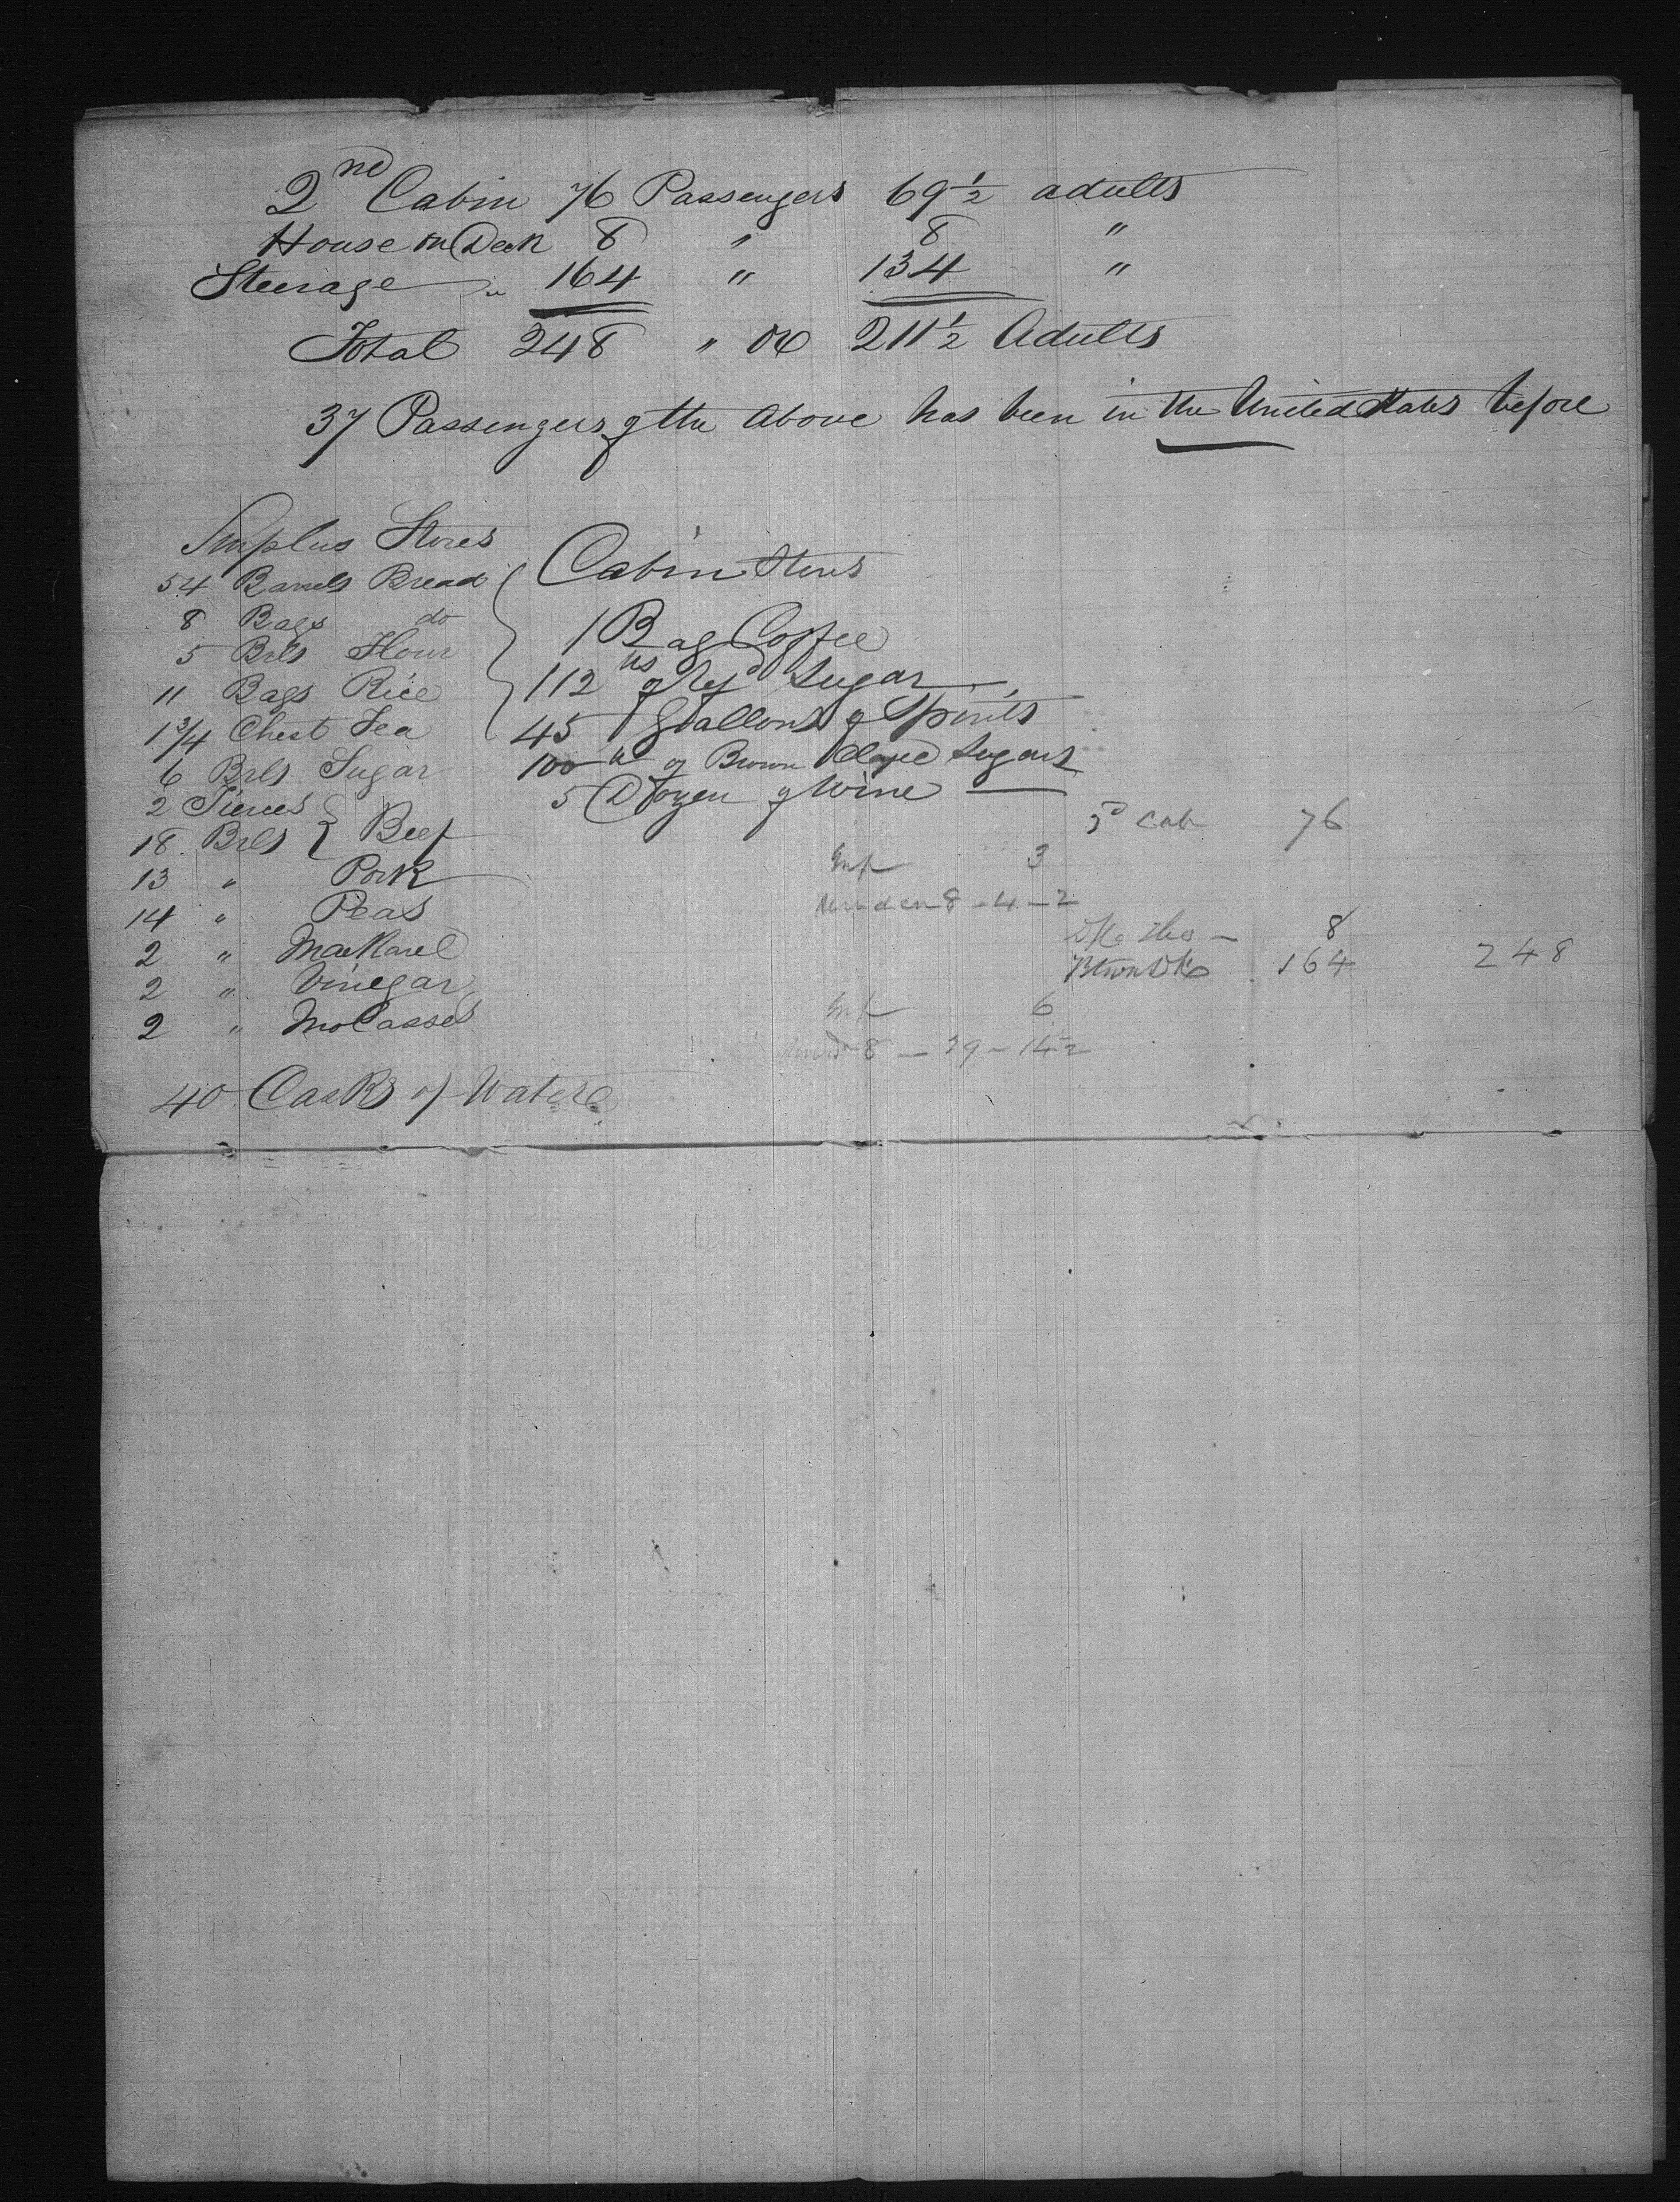 2nd Cabin 76 Passengers 69 1/2 adults
House on Deck 8 " 8 "
Steerage " 164 " 134 "
Total 248 " or 211 1/2 Adults
37 Passengers of the Above has been in the United States before
Surplus Stores
54 Barrels Bread
8 Bags do
5 Brls Flour
11 Bags Rice
1 3/4 Chest Tea
6 Brls Sugar
2 Tierces
18 Brls } Beef
13 " Pork
14 " Peas
2 " Mackarel
2 " Vinegar
2 " Molasses
40 Casks of Water
Cabin Stores
1 Bag Coffee
112 lbs of Sugar
45 Gallons of Spirits
100 of Brown Sugar
5 Dozen of Wine
Cab 76
Inf 3
Under 8 - 4 - 2
8
164 248
Inf 6
Under 8 - 29 - 14 1/2